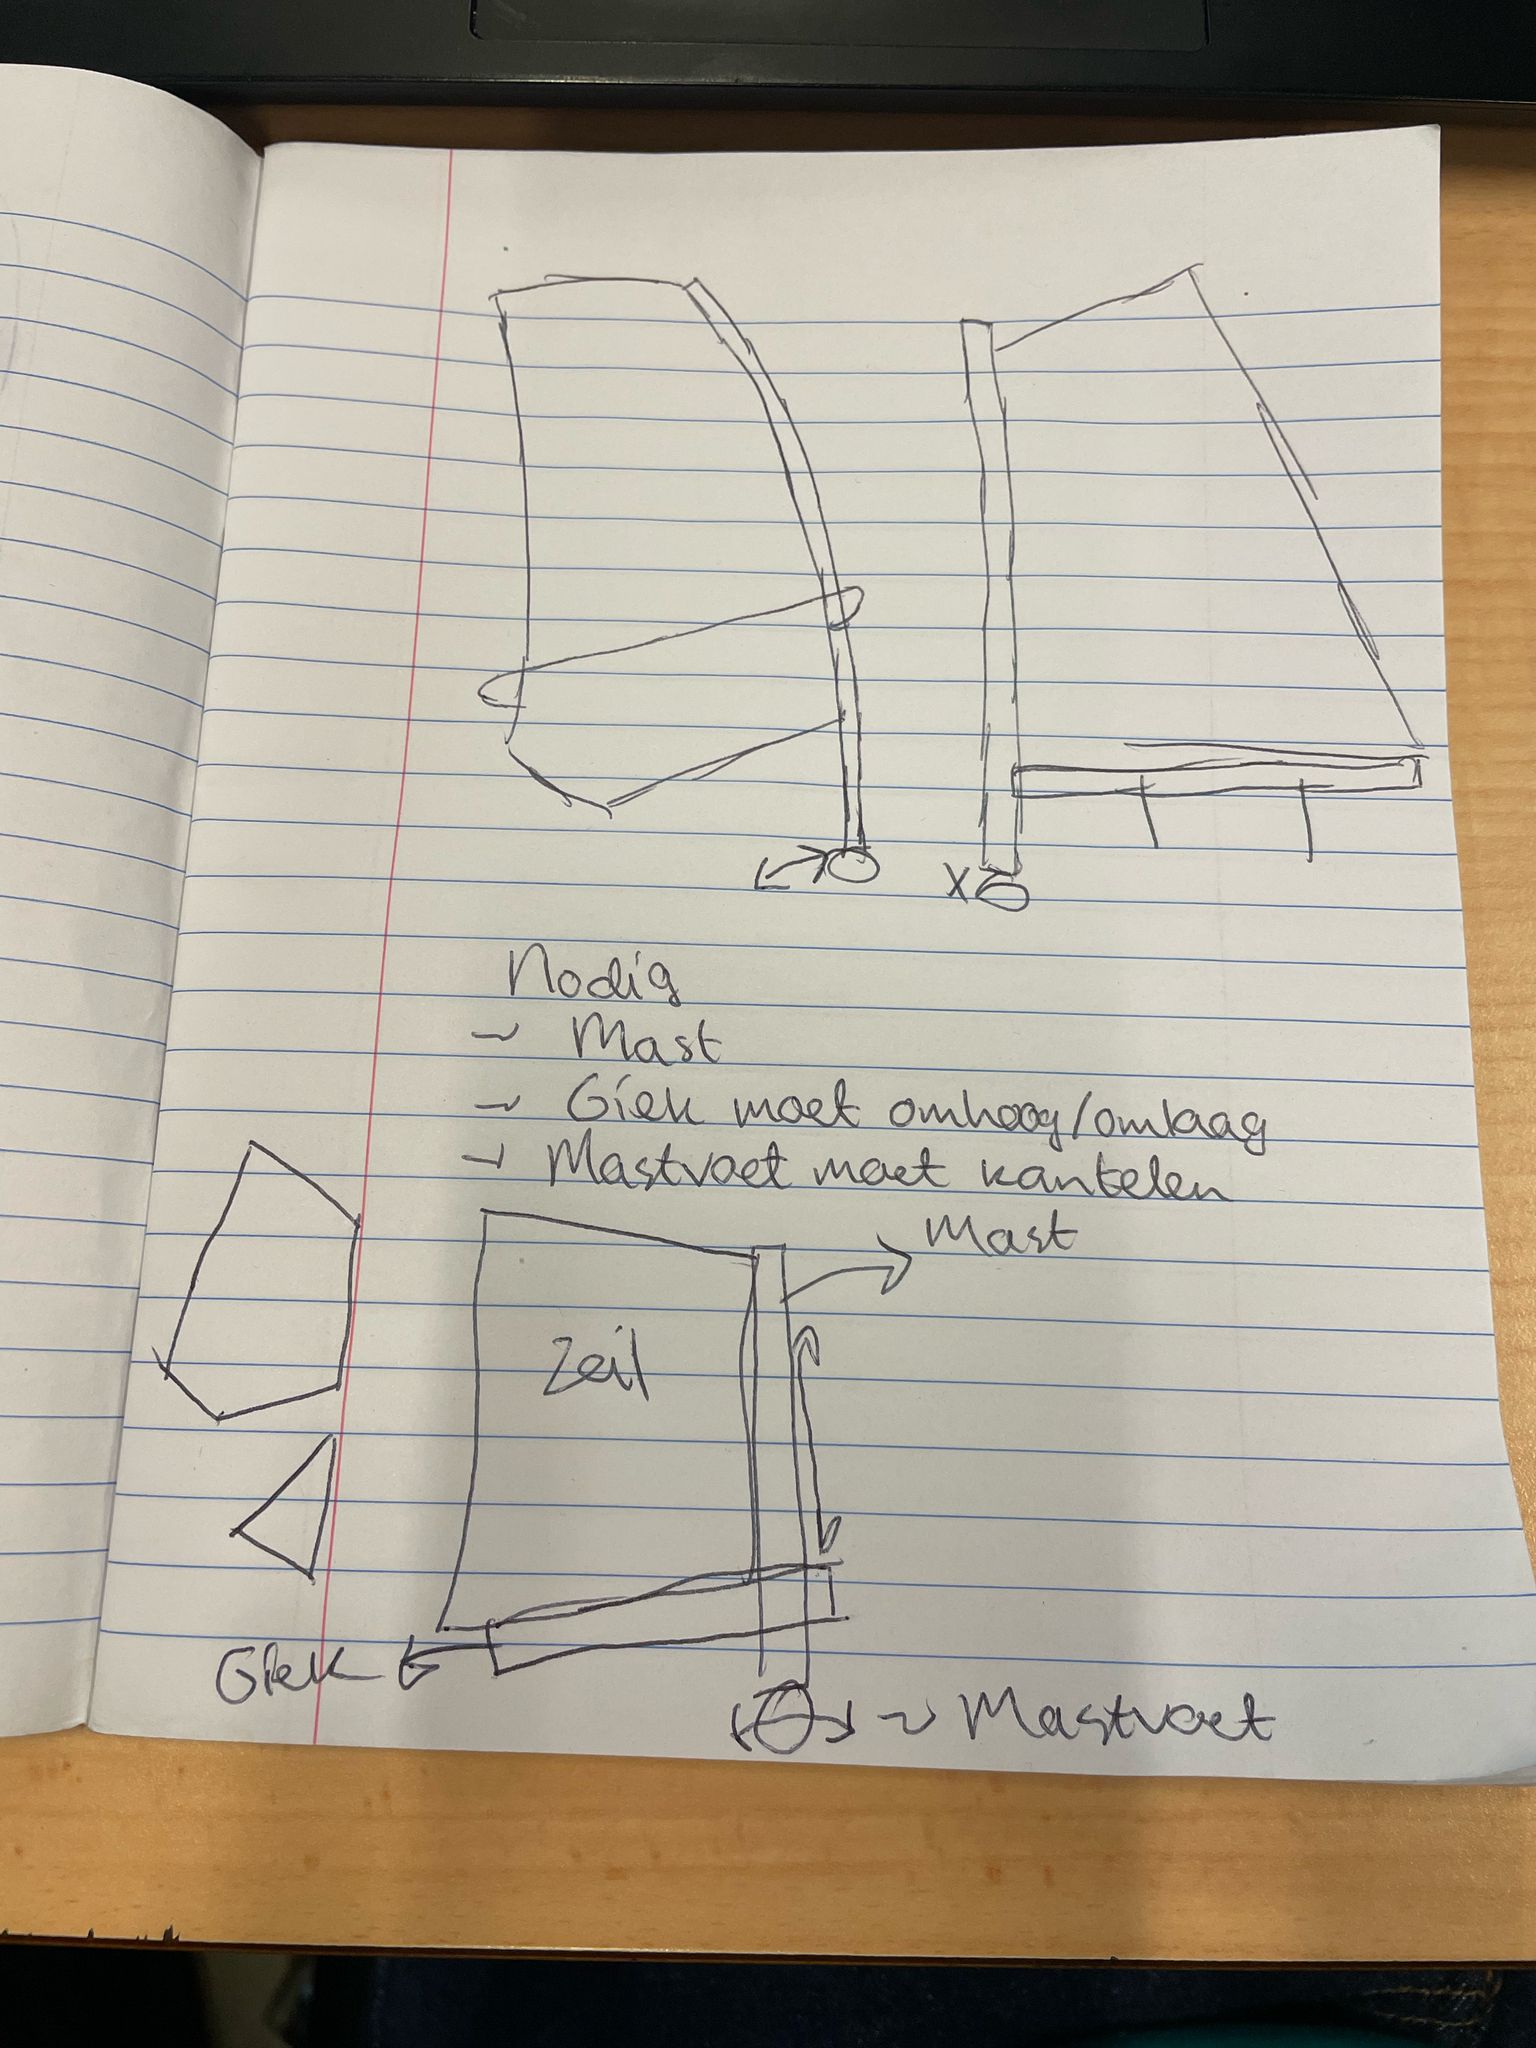 X
Nodig
→ Mast
→ Giek moet omhoog/omlaag
→ Mastvoet moet kantelen
Mast
Zeil
Giek
→ Mastvoet